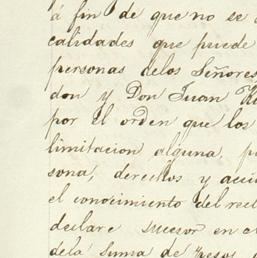 á fin de que no se
calidades que puede
personas delos Señores
don y Don Juan
por el orden que los
limitacion alguna, p
sona, derechos y acci
el conocimiento del rec
declare sucesor en c
dela suma de pesos